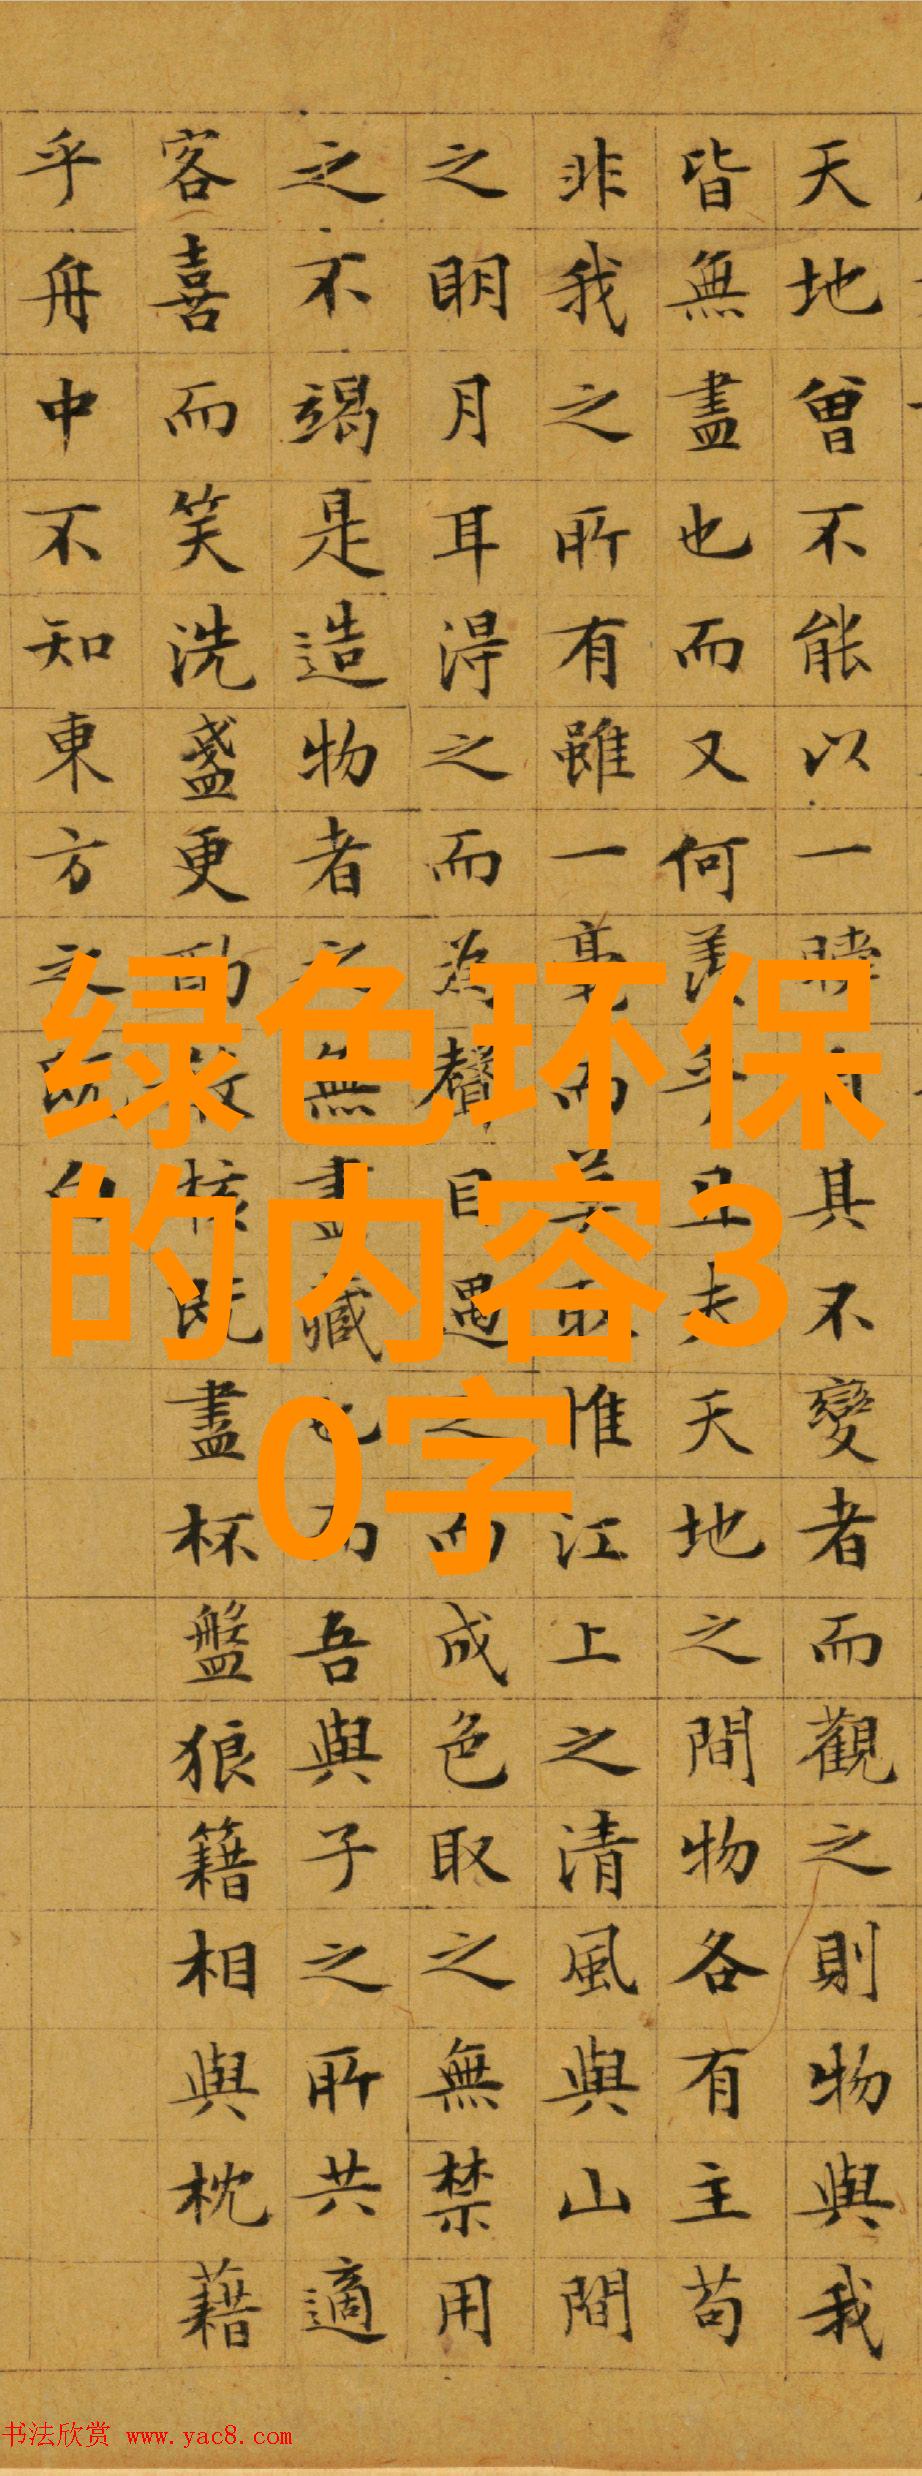 天地曾不能以一瞬自其不變者而觀之則物與我
皆無盡也而又何羨乎且夫天地之間物各有主苟
非我之所有雖一毫而莫取惟江上之清風與山間
之明月耳得之而為聲目遇之而成色取之無禁用
之不竭是造物者之無盡藏也而吾與子之所共適
客喜而笑洗盞更酌肴核既盡杯盤狼籍相與枕藉
乎舟中不知東方之既白
绿色环保
的内容3
0字
书法欣赏 www.yac8.com